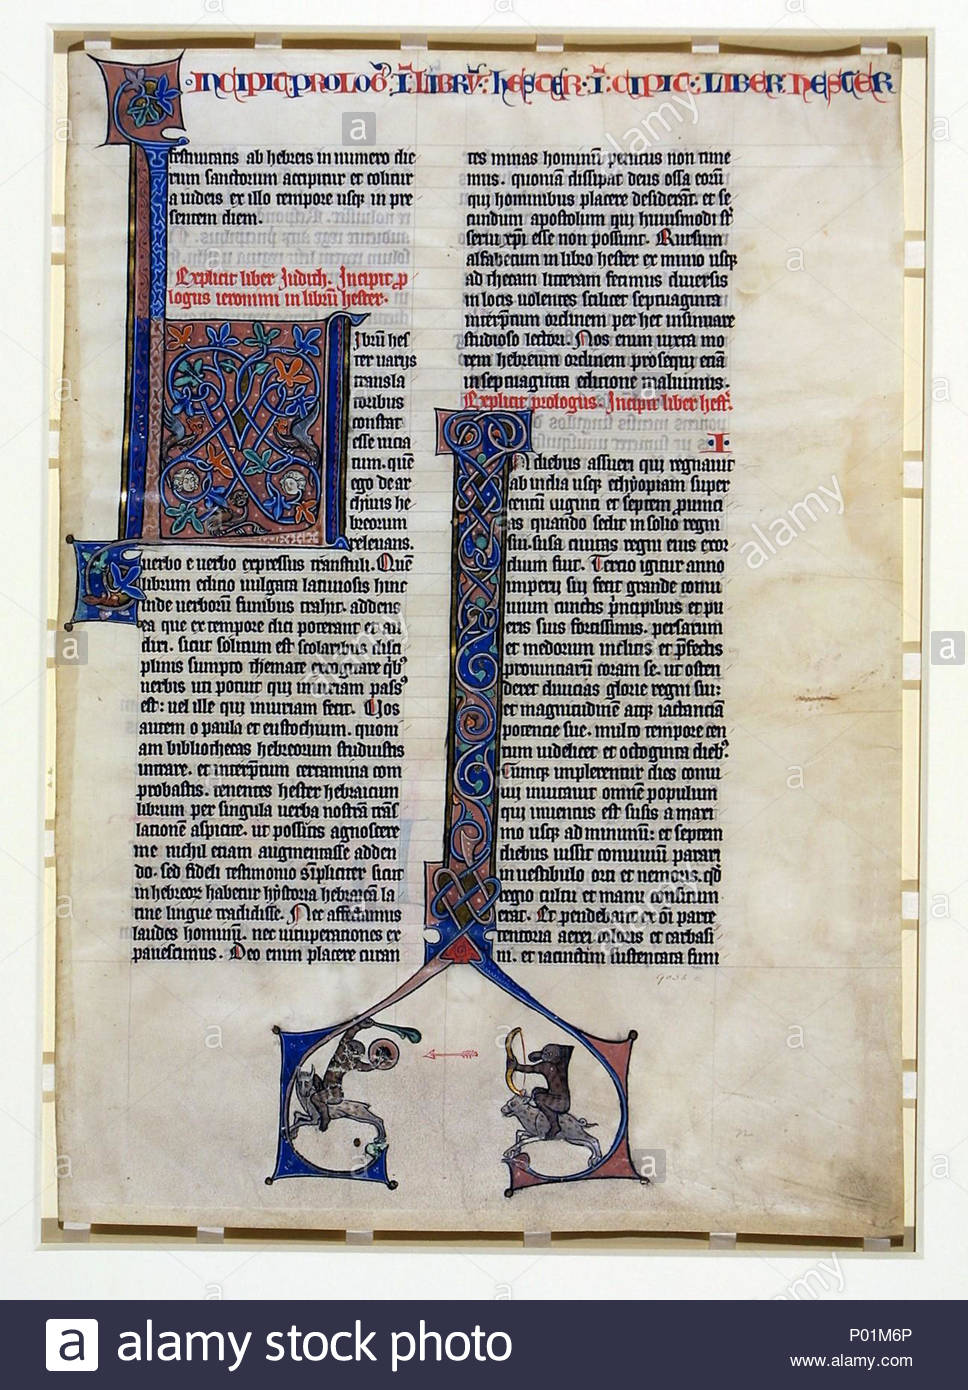 INCIPIT PROLOG' I LIBRV HESTER I CIPIT LIBER HESTER
festiuitatis ab hebreis in numero die
rum sanctorum accipitur et colitur
a iudeis ex illo tempore usq; in pre
sentem diem.
Explicit liber Judith. Incipit p
logus ieronimi in librū hester.
Librū hes
ter uariis
transla
toribus
constat
esse uicia
tum. quē
ego de ar
chiuis he
breorum
releuans.
uerbo e uerbo expressius transtuli. Quē
librum editio uulgata laciniosis hinc
inde uerborū funibus trahit. addens
ea que ex tempore dici poterant et au
diri. sicut solitum est scolaribus disci
plinis sumpto themate excogitare qb'
uerbis uti potuit qui iniuriam pass'
est: uel ille qui iniuriam fecit. Uos
autem o paula et eustochium. quoni
am bibliothecas hebreorum studuistis
intrare. et interptum certamina com
probastis. tenentes hester hebraicum
librum per singula uerba nostrā trās
lationē aspicite. ut possitis agnoscere
me nichil etiam augmentasse adden
do. sed fideli testimonio simpliciter sicut
in hebreo habetur hystoria hebraicā la
tine lingue tradidisse. Nec affectamus
laudes hominū. nec uituperationes ex
pauescimus. Deo enim placere curan
tes minas hominū penitus non time
mus. quoniā dissipat deus ossa eorū
qui hominibus placere desiderāt. et se
cundum apostolum qui huiusmodi st
serui xpi esse non possunt. Rursum
alfabetum in libro hester ex minio usq;
ad thetam litteram fecimus diuersis
in locis uolentes scilicet septuaginta
interptum ordinem per hec insinuare
studioso lectori. Nos enim iuxta mo
rem hebreum ordinem prosequi etiā
in septuaginta editione maluimus.
Explicit prologus. Incipit liber hest'.
I
In diebus assueri qui regnauit
ab india usq; ethyopiam super
centū uiginti et septem prouinci
as quando sedit in solio regni
sui. susa ciuitas regni eius exor
dium fuit. Tercio igitur anno
imperii sui fecit grande conui
uium cunctis principibus et pu
eris suis fortissimis. persarum
et medorum inclitis et pfectis
prouinciarū coram se. ut osten
deret diuicias glorie regni sui:
et magnitudinē atq; iactanciā
potencie sue. multo tempore cen
tum uidelicet et octoginta dieb'.
Cumq; implerentur dies conui
uii inuitauit omnē populum
qui inuentus est susis a maxi
mo usq; ad minimū: et septem
diebus iussit conuiuiū parari
in uestibulo orti et nemoris. qd
regio cultu et manu consitum
erat. Et pendebant ex oī parte
tentoria aerei coloris et carbasi
ni. et iacinctini sustentata funi
alamy stock photo
P01M6P
www.alamy.com